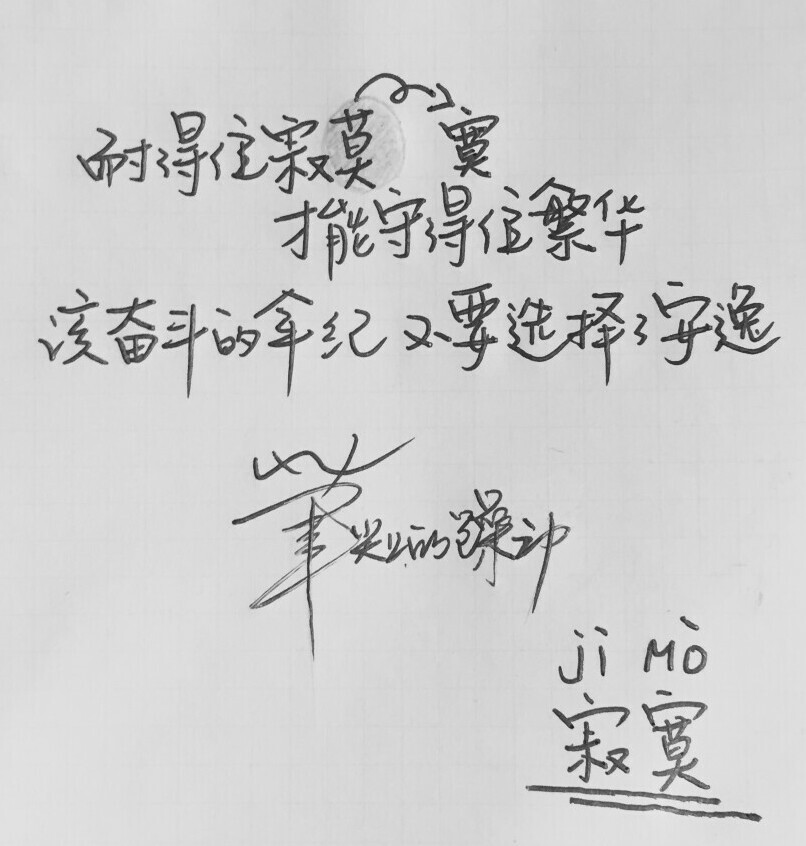 耐得住寂莫 寞
才能守得住繁华
该奋斗的年纪不要选择了安逸
笔尖上的躁动
jì Mò
寂寞